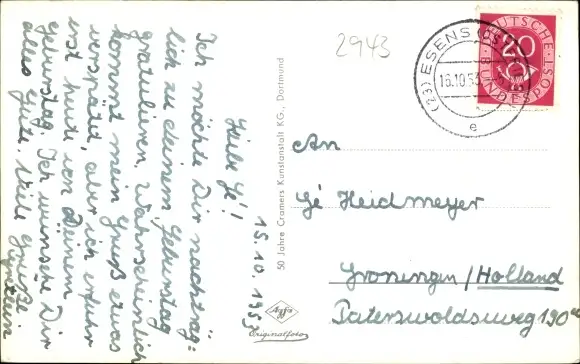 2943
15.10.1953
Liebe Gé!
Ich möchte Dir nachträg=
lich zu deinem Geburtstag
gratulieren. Wahrscheinlich
kommt mein Gruß etwas
verspätet, aber ich erfuhr
erst heute von Deinem
Geburtstag. Ich wünsche Dir
alles Gute. Viele Grüße
50 Jahre Cramers Kunstanstalt KG., Dortmund
Agfa
Originalfoto
(23) ESENS (OSTFR
16.10.53
e
DEUTSCHE
BUNDESPOST
20
An
Gé Heidmeyer
Groningen / Holland
Paterswoldseweg 190